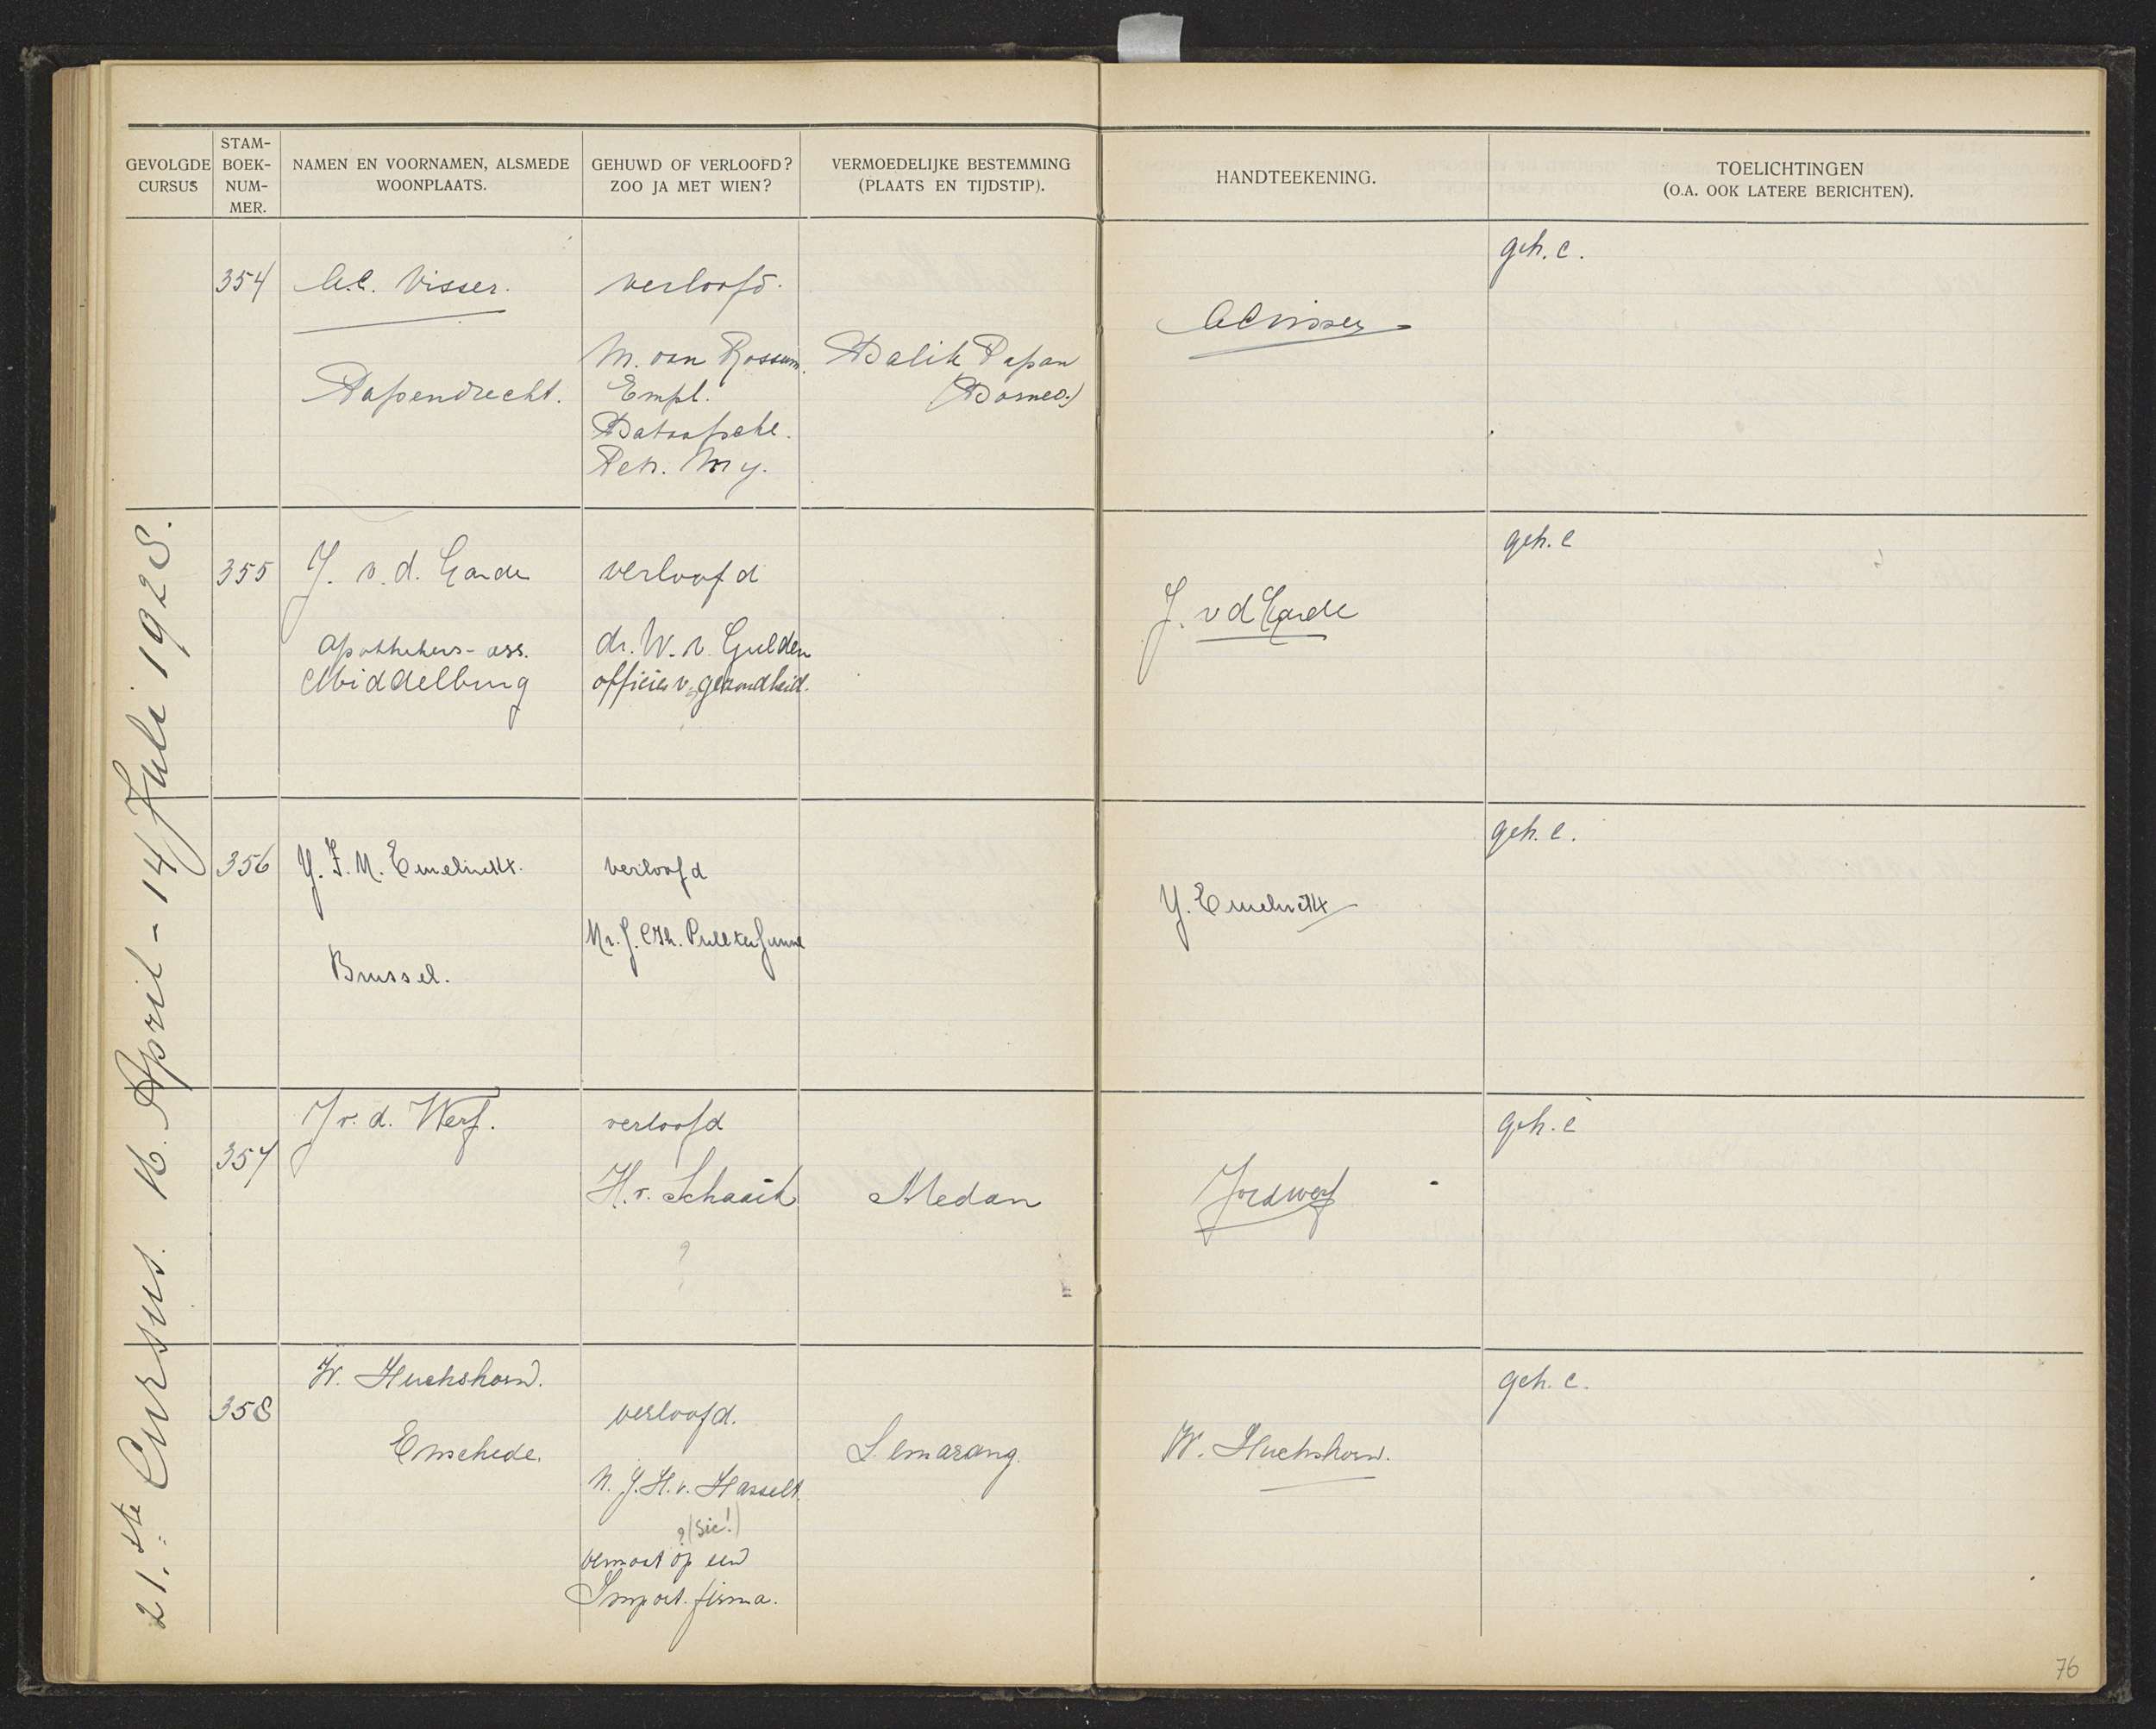 GEVOLGDE CURSUS
STAM-BOEK-NUM-MER.
NAMEN EN VOORNAMEN, ALSMEDE WOONPLAATS.
GEHUWD OF VERLOOFD? ZOO JA MET WIEN?
VERMOEDELIJKE BESTEMMING (PLAATS EN TIJDSTIP).
HANDTEEKENING.
TOELICHTINGEN (O.A. OOK LATERE BERICHTEN).
21.ste Cursus. 16. April - 14 Juli 1928.
354
A.C. Visser.
Papendrecht.
verloofd.
M. van Rossum.
Empl.
Bataafsche.
Petr. My.
Balik Papan
(Borneo.)
ACVisser
geh. c.
355
J. v. d. Garde
apothekers-ass.
Middelburg
verloofd
dr. W. v. Gulden
officier v. gezondheid.
J. v d Garde
geh. c
356
Y. F. M.
Brussel.
verloofd
Mr. J.
Y.
geh. c.
357
J v. d. Werf.
verloofd
H. v. Schaaik
?
Medan
JvdWerf
geh. c
358
W. Huckshorn.
Enschede.
verloofd.
N. J. H. v. Hasselt.
? (sic!)
op een
Import. firma.
Semarang.
W. Huckshorn.
geh. c.
76